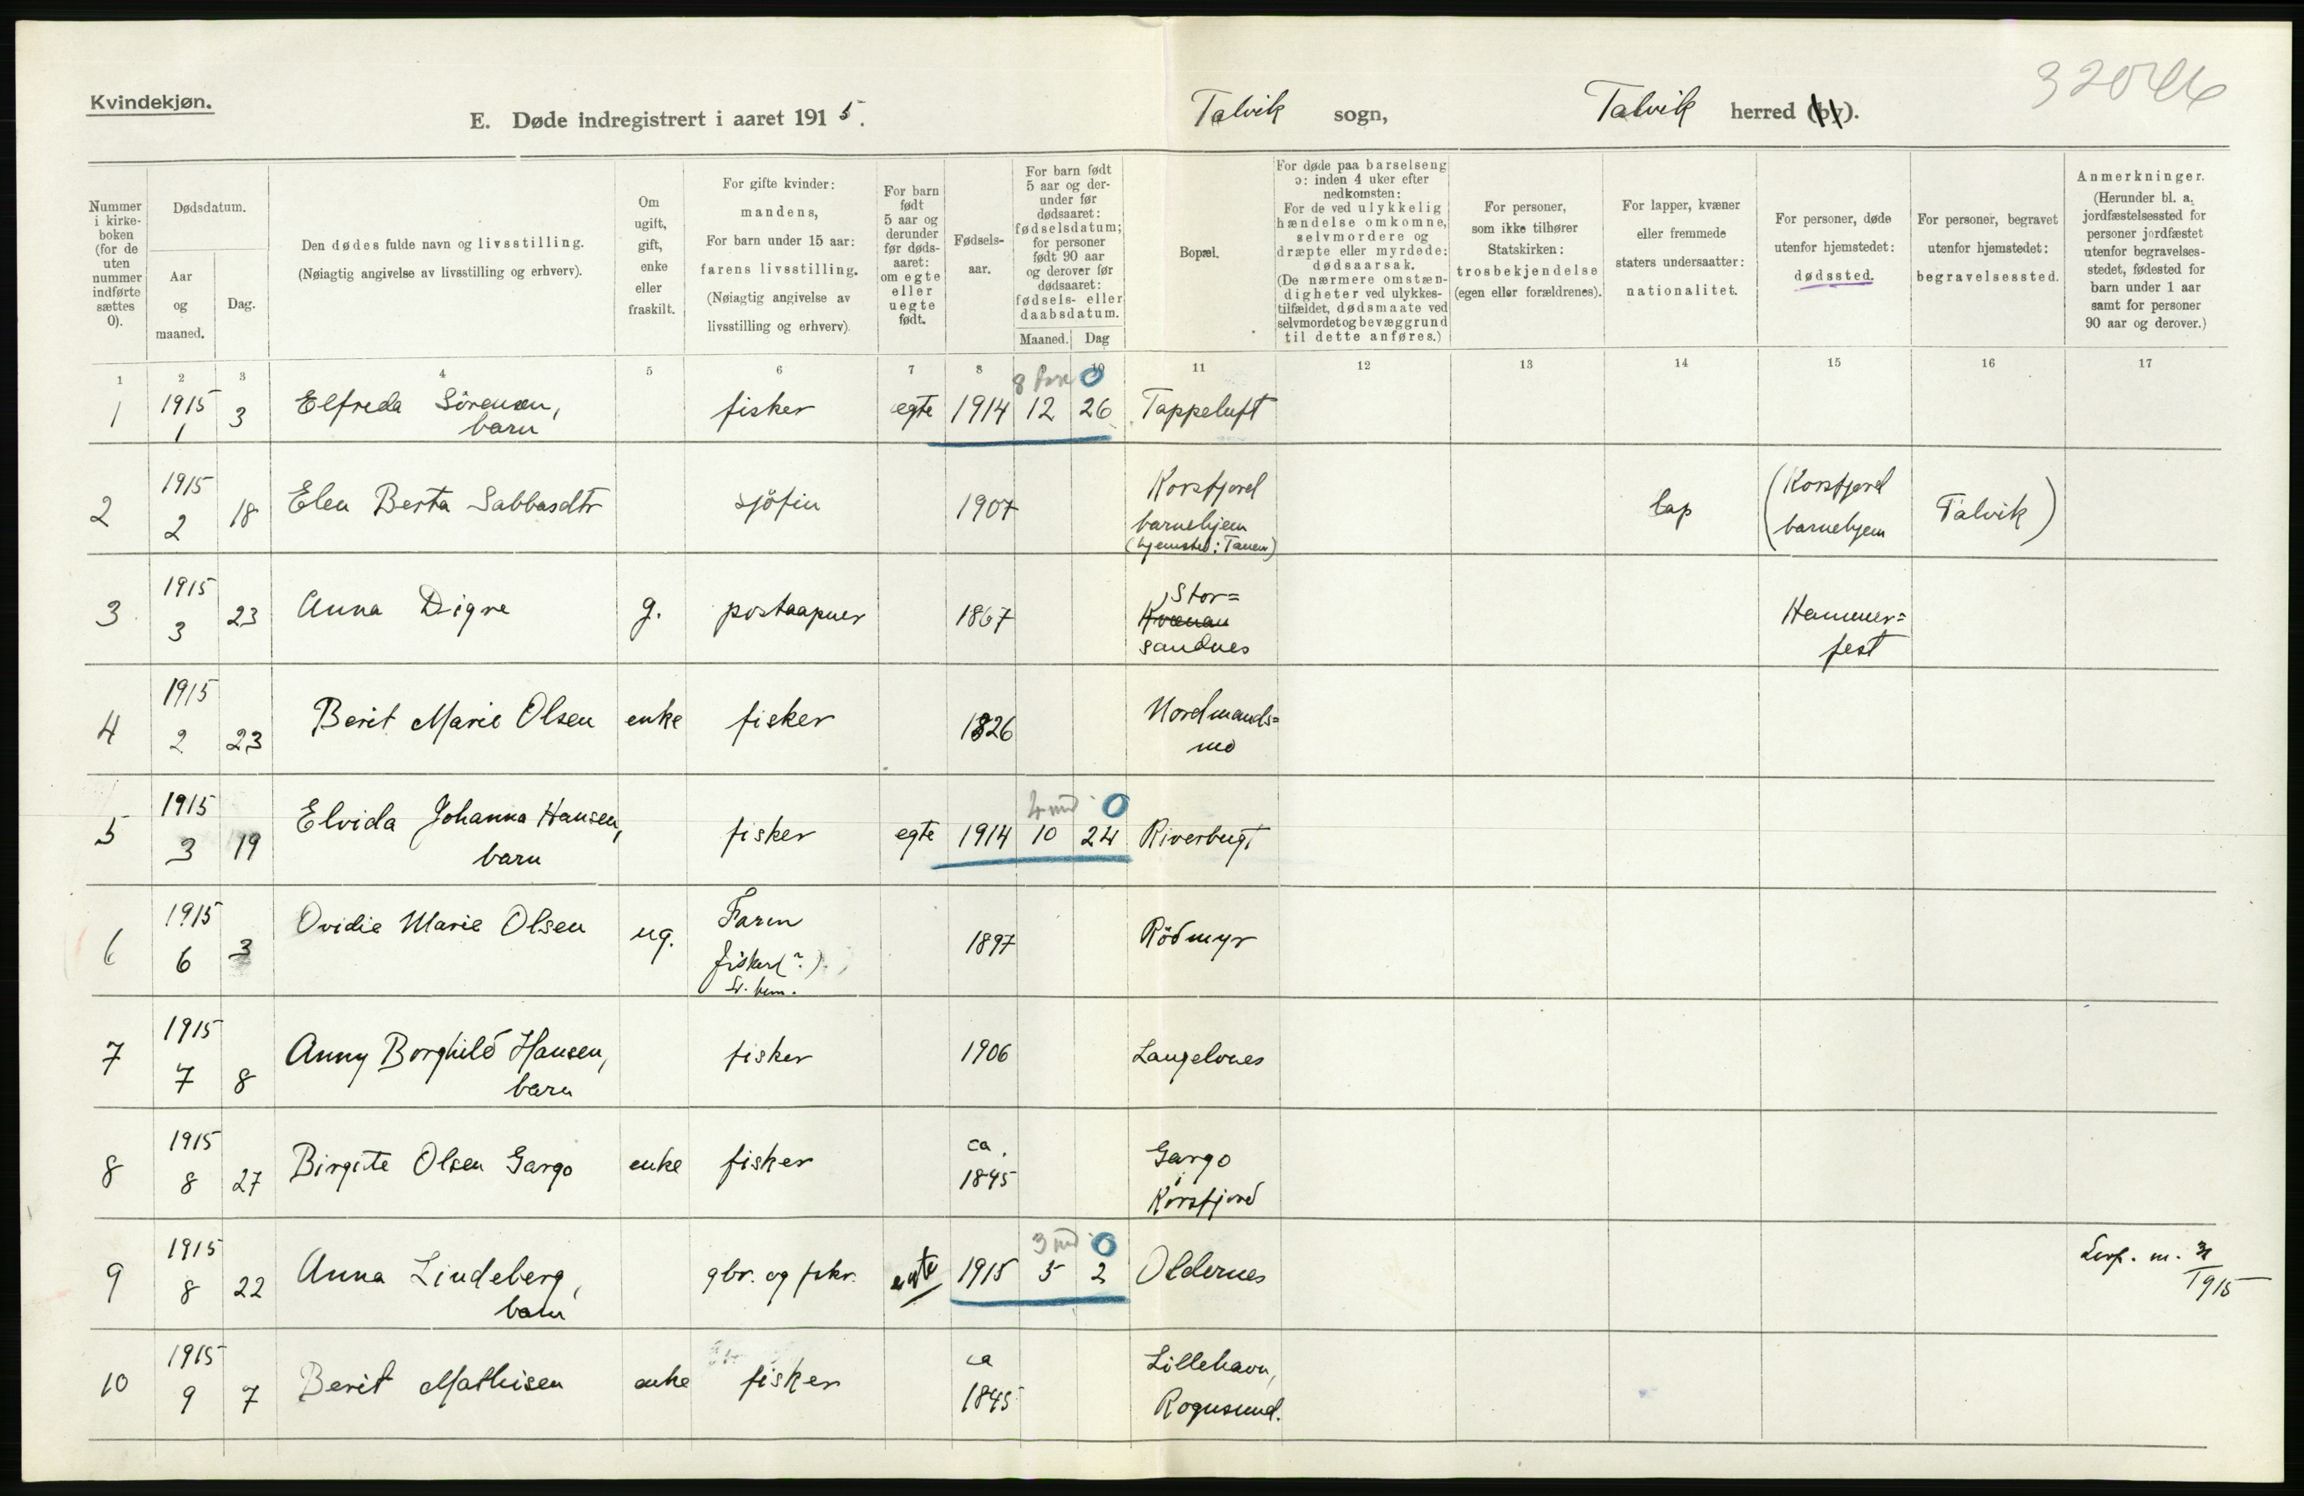 Kvindekjøn.
E. Døde indregistrert i aaret 1915.
Talvik sogn, Talvik herred (by).
Nummer i kirkeboken (for de uten nummer indførte sættes 0).
Dødsdatum.
Aar og maaned.
Dag.
Den dødes fulde navn og livsstilling.
(Nøiagtig angivelse av livsstilling og erhverv).
Om ugift, gift, enke eller fraskilt.
For gifte kvinder: mandens,
For barn under 15 aar: farens livsstilling.
(Nøiagtig angivelse av livsstilling og erhverv).
For barn født 5 aar og derunder før dødsaaret: om egte eller uegte født.
Fødselsaar.
For barn født 5 aar og derunder før dødsaaret: fødselsdatum; for personer født 90 aar og derover før dødsaaret: fødsels- eller daabsdatum.
Maaned. Dag
Bopæl.
For døde paa barselseng ɔ: inden 4 uker efter nedkomsten:
For de ved ulykkelig hændelse omkomne, selvmordere og dræpte eller myrdede: dødsaarsak.
(De nærmere omstændigheter ved ulykkestilfældet, dødsmaate ved selvmordet og bevæggrund til dette anføres.)
For personer, som ikke tilhører Statskirken: trosbekjendelse (egen eller forældrenes).
For lapper, kvæner eller fremmede staters undersaatter: nationalitet.
For personer, døde utenfor hjemstedet: dødssted.
For personer, begravet utenfor hjemstedet: begravelsessted.
Anmerkninger.
(Herunder bl. a. jordfæstelsessted for personer jordfæstet utenfor begravelsesstedet, fødested for barn under 1 aar samt for personer 90 aar og derover.)
1 2 3 4 5 6 7 8 9 10 11 12 13 14 15 16 17
8 0
1 1915 1 3 Elfreda Sörensen, barn fisker egte 1914 12 26 Tappeluft
2 1915 2 18 Elen Berta Sabbasdtr sjöfin 1907 Korsfjord barnehjem (hjemsted: Tanen) lap (Korsfjord barnehjem Talvik)
3 1915 3 23 Anna Digre g. postaapner 1867 Stor= sandnes Hammer= fest
4 1915 2 23 Berit Marie Olsen enke fisker 1826 Nordmands= mo
4 md 0
5 1915 3 19 Elvida Johanna Hansen, barn fisker egte 1914 10 24 Riverbugt
6 1915 6 3 Ovidie Marie Olsen ug. Faren fisker (?) 1897 Rödmyr
7 1915 7 8 Anny Borghild Hansen, barn fisker 1906 Langelones
8 1915 8 27 Birgite Olsen Gargo enke fisker ca. 1845 Gargo Korsfjord
3 md 0
9 1915 8 22 Anna Lindeberg, barn gbr. og fskr. egte 1915 5 2 Oldernes
1915
10 1915 9 7 Berit Mathisen enke fisker ca 1845 Lillehavn, Rognsund.